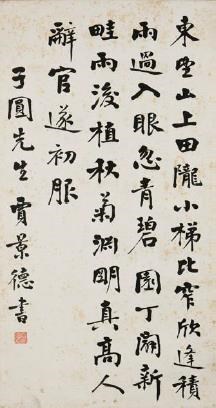 東望山上田隴小梯比窄欣逢積
雨過入眼忽青碧園丁闢新
畦雨後植秋菊淵明真高人
辭官遂初服
子圓先生 賈景德書